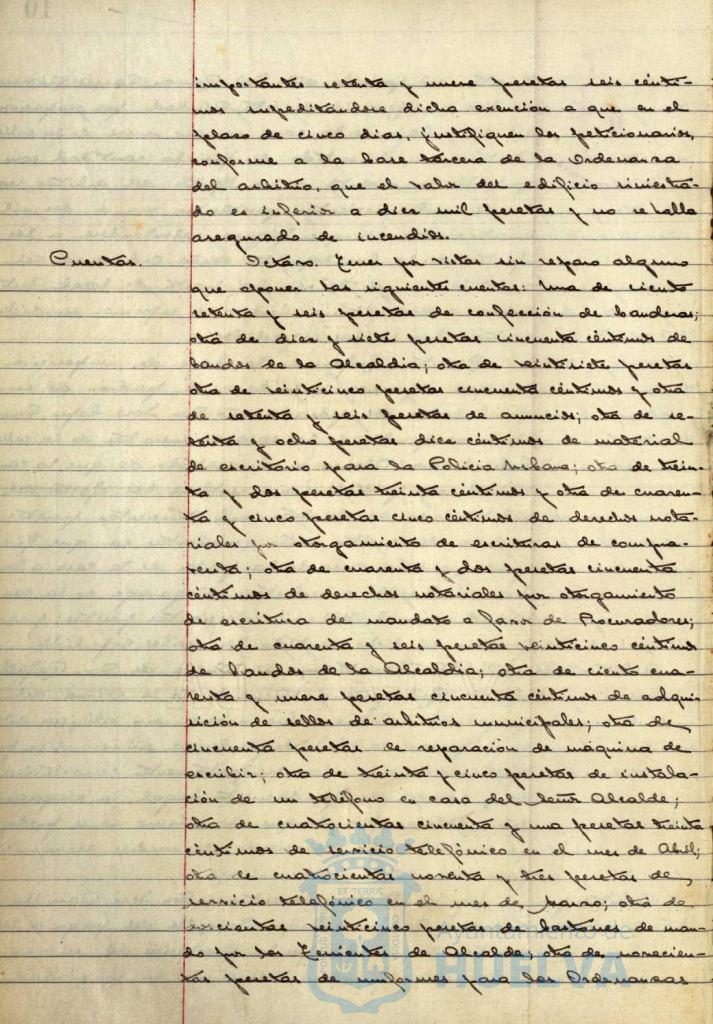 importantes setenta y nueve pesetas seis cénti-
mos supeditándose dicha exención a que en el
plazo de cinco días, justifiquen los peticionarios,
conforme a la base tercera de la Ordenanza
del arbitrio, que el valor del edificio siniestra-
do es inferior a diez mil pesetas y no se halla
asegurado de incendios.
Cuentas. Octavo. Tener por vistas sin reparo alguno
que oponer las siguientes cuentas: una de ciento
setenta y seis pesetas de confección de banderas;
otra de diez y siete pesetas cincuenta céntimos de
bandos de la Alcaldía; otra de veintisiete pesetas
otra de veinticinco pesetas cincuenta céntimos y otra
de setenta y seis pesetas de anuncios; otra de se-
tenta y ocho pesetas diez céntimos de material
de escritorio para la Policía Urbana; otra de trein-
ta y dos pesetas treinta céntimos y otra de cuaren-
ta y cinco pesetas cinco céntimos de derechos nota-
riales por otorgamiento de escrituras de compra-
venta; otra de cuarenta y dos pesetas cincuenta
céntimos de derechos notariales por otorgamiento
de escritura de mandato a favor de Procuradores;
otra de cuarenta y seis pesetas veinticinco céntimos
de bandos de la Alcaldía; otra de ciento cua-
renta y nueve pesetas cincuenta céntimos de adqui-
sición de sellos de arbitrios municipales; otra de
cincuenta pesetas de reparación de máquina de
escribir; otra de treinta y cinco pesetas de instala-
ción de un teléfono en casa del Señor Alcalde;
otra de cuatrocientas cincuenta y una pesetas treinta
céntimos de servicio telefónico en el mes de Abril;
otra de cuatrocientas noventa y tres pesetas de
servicio telefónico en el mes de Marzo; otra de
doscientas veinticinco pesetas de bastones de man-
do por los Tenientes de Alcalde; otra de novecien-
tas pesetas de uniformes para los Ordenanzas
ET TERRÆ
Ayuntamiento de
HUELVA